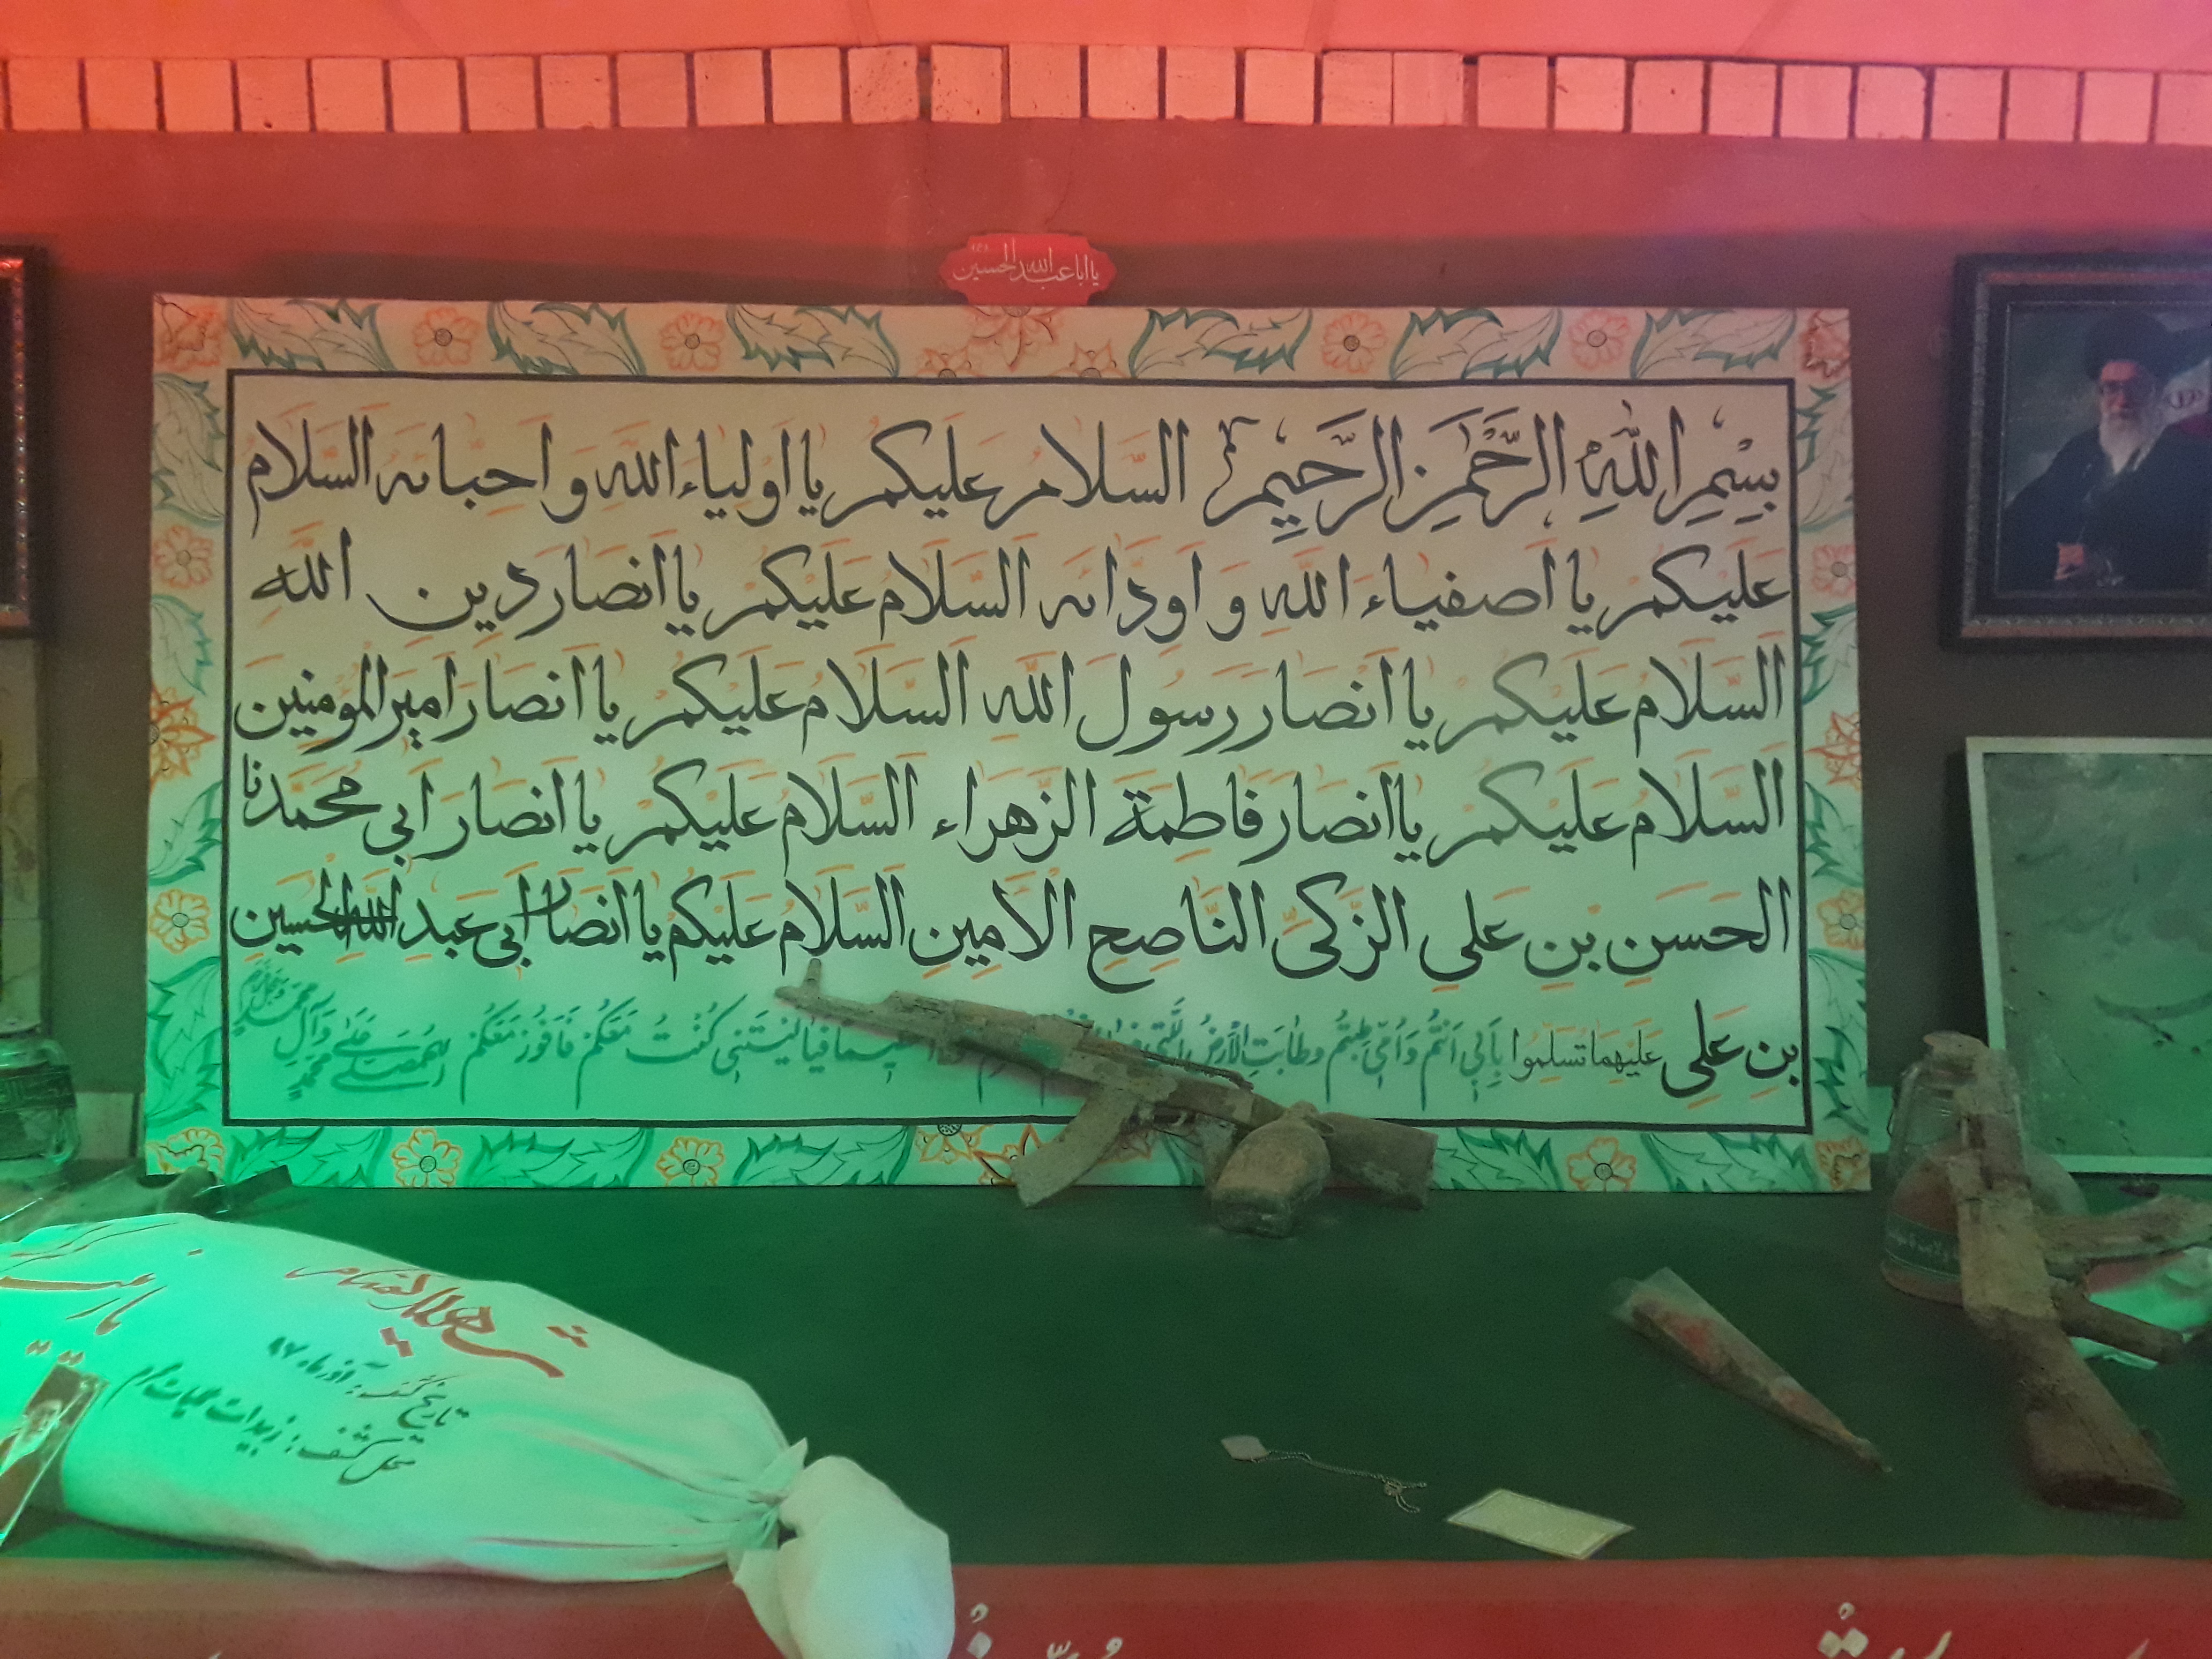 یا ابا عبدالله الحسین
بِسْمِ اللهِ الرَّحْمٰنِ الرَّحیمِ السَّلامُ عَلَیکُمْ یا اَولیاءَ اللهِ وَ اَحِبائَه اَلسَّلامُ
عَلَیْکُمْ یا اَصفیاءَ اللهِ وَ اَوِدّائَه اَلسَّلامُ عَلَیْکُمْ یا اَنصارَ دینِ اللهِ
اَلسَّلامُ عَلَیْکُمْ یا اَنْصارَ رَسُولِ اللهِ اَلسَّلامُ عَلَیْکُمْ یا اَنصارَ اَمیرِالمُومِنینَ
اَلسَّلامُ عَلَیْکُمْ یا اَنصارَ فاطِمَةَ الزَّهراء اَلسَّلامُ عَلَیکُمْ یا اَنصارَ اَبی مُحَمَّدنا
الحَسَنِ بْنِ عَلیِ الزَّکیِّ النّاصِحِ الاَمینِ اَلسَّلامُ عَلَیکُم یا اَنصارَ اَبی عَبدِاللهِ الحُسَینِ
بنِ عَلیِ عَلَیهِما تسلِموا بِاَبی اَنْتُم وَ اُمّی طِبْتُم وَ طابَتِ الْاَرضُ الَّتی فیالَیْتَنی کُنْتُ مَعَکُم فَاَفُوزَ مَعَکُم اللهم صل علی محمد وآل محمد وعجل فرجهم
شهید گمنام
تاریخ کشف: آذر ماه ۸۷
محل کشف: زبیدات عملیات محرم